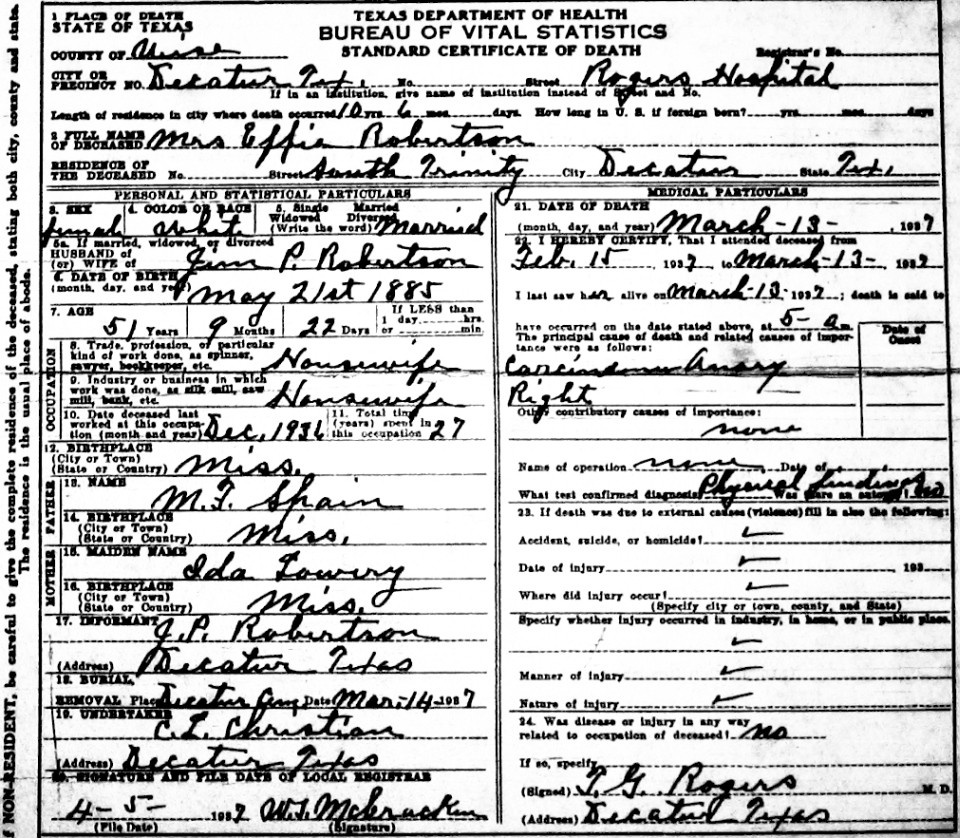 NON-RESIDENT, be careful to give the complete residence of the deceased, stating both city, county and state.
The residence is the usual place of abode.
1 PLACE OF DEATH
STATE OF TEXAS
TEXAS DEPARTMENT OF HEALTH
BUREAU OF VITAL STATISTICS
STANDARD CERTIFICATE OF DEATH
COUNTY OF Wise
Registrar's No.
CITY OR
PRECINCT NO. Decatur Tex. No. Street Rogers Hospital
If in an institution, give name of institution instead of Street and No.
Length of residence in city where death occurred 10 yrs. 6 mos. days. How long in U. S. if foreign born? yrs. mos. days
2 FULL NAME
OF DECEASED Mrs Effie Robertson
RESIDENCE OF
THE DECEASED No. Street South Trinity City Decatur State Tex.
PERSONAL AND STATISTICAL PARTICULARS
3. SEX 4. COLOR OR RACE 5. Single Married
Widowed Divorced
female White (Write the word) Married
5a. If married, widowed, or divorced
HUSBAND of
(or) WIFE of Jim P. Robertson
6. DATE OF BIRTH
(month, day, and year) May 21st 1885
7. AGE If LESS than
51 Years 9 Months 22 Days 1 day hrs.
or min.
OCCUPATION
8. Trade, profession, or particular
kind of work done, as spinner,
sawyer, bookkeeper, etc. Housewife
9. Industry or business in which
work was done, as silk mill, saw
mill, bank, etc. Housewife
10. Date deceased last
worked at this occupa-
tion (month and year) Dec, 1936
11. Total time
(years) spent in
this occupation 27
12. BIRTHPLACE
(City or Town)
(State or Country) Miss.
FATHER
13. NAME
M.F. Spain
14. BIRTHPLACE
(City or Town)
(State or Country) Miss.
MOTHER
15. MAIDEN NAME
Ida Lowery
16. BIRTHPLACE
(City or Town)
(State or Country) Miss.
17. INFORMANT
J.P. Robertson
(Address) Decatur Texas
18. BURIAL,
REMOVAL Place Decatur Date Mar.-14-1937
19. UNDERTAKER
C.L. Christian
(Address) Decatur Texas
20. SIGNATURE AND FILE DATE OF LOCAL REGISTRAR
4-5- 1937 McCracken
(File Date) (Signature)
MEDICAL PARTICULARS
21. DATE OF DEATH
(month, day, and year) March-13-, 1937
22. I HEREBY CERTIFY, That I attended deceased from
Feb. 15, 1937, to March-13-, 1937
I last saw her alive on March-13-1937; death is said to
have occurred on the date stated above, at 5- a m.
The principal cause of death and related causes of impor-
tance were as follows:
Date of
Onset
Carcinoma
Right
Other contributory causes of importance:
none
Name of operation none Date of
What test confirmed diagnosis Physical findings Was there an autopsy? no
23. If death was due to external causes (violence) fill in also the following:
Accident, suicide, or homicide? ✓
Date of injury ✓ 193
Where did injury occur? ✓
(Specify city or town, county, and State)
Specify whether injury occurred in industry, in home, or in public place.
✓
Manner of injury ✓
Nature of injury ✓
24. Was disease or injury in any way
related to occupation of deceased? no
If so, specify
(Signed) T. G. Rogers M. D.
(Address) Decatur Texas